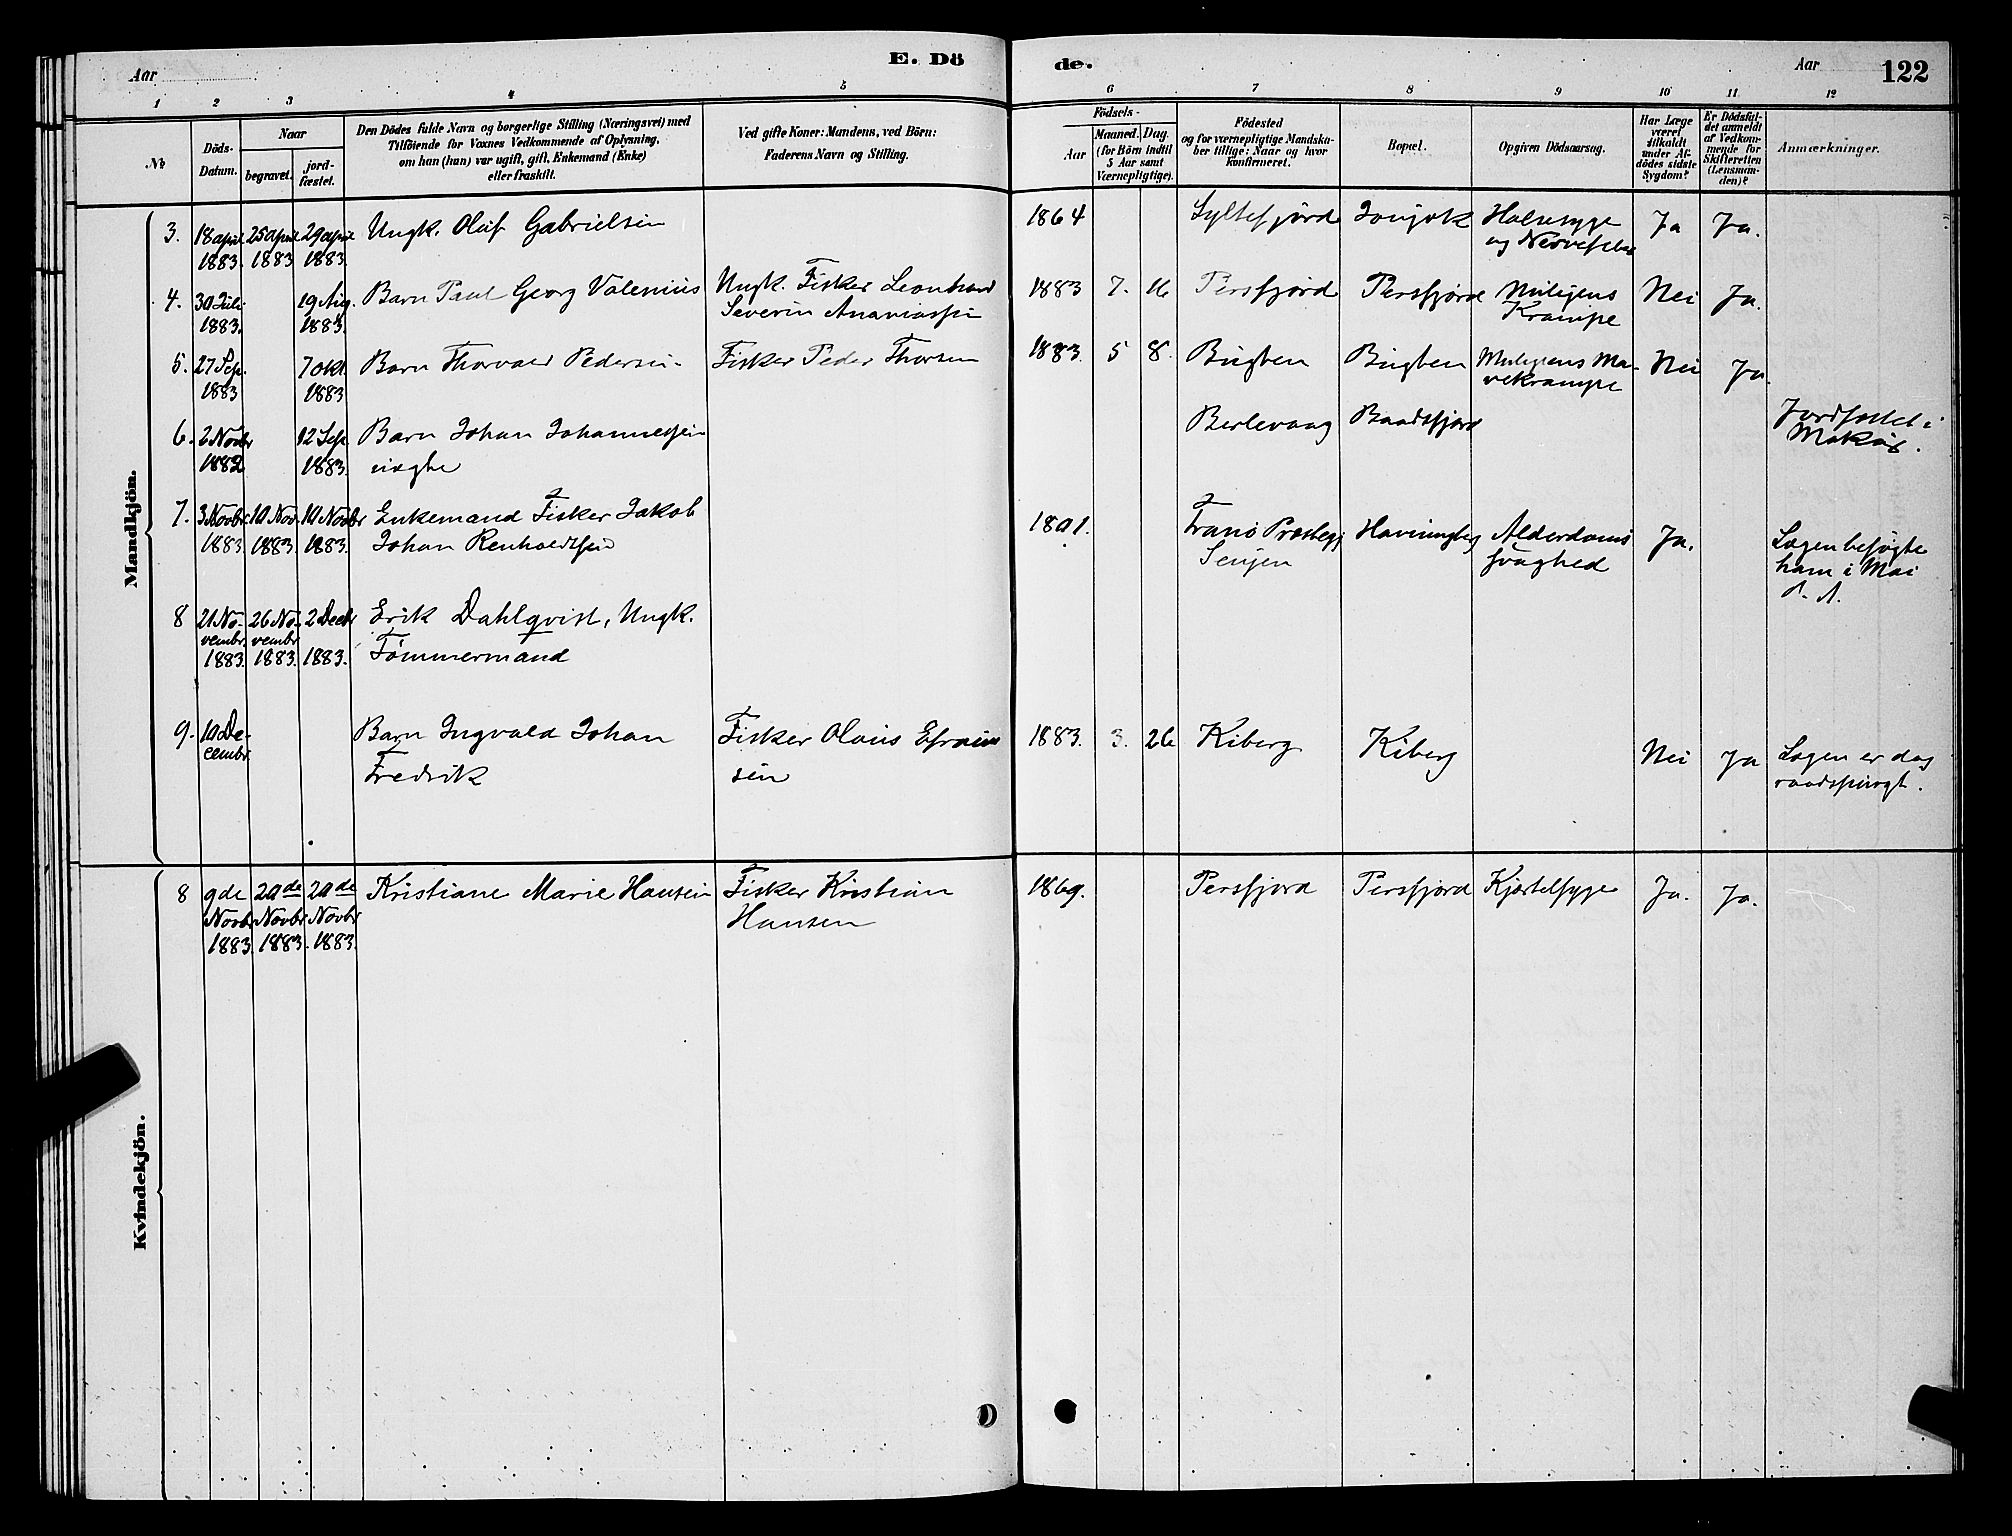 E. Dö
de.
Aar
Aar
122
1 2 3 4 5 6 7 8 9 10 11 12
No
Döds-
Datum.
Naar
begravet.
jord-
fæstet.
Den Dödes fulde Navn og borgerlige Stilling (Næringsvei) med
Tilföiende for Voxnes Vedkommende af Oplysning,
om hun (han) var ugift, gift, Enkemand (Enke)
eller fraskilt.
Ved gifte Koner: Mandens, ved Börn:
Faderens Navn og Stilling.
Födsels-
Aar
Maaned. Dag.
(for Börn indtil
5 Aar samt
Værnepligtige).
Födested
og for værnepligtige Mandska-
ber tillige: Naar og hvor
konfirmeret.
Bopæl.
Opgiven Dödsaarsag.
Har Læge
været
tilkaldt
under Af-
dödes sidste
Sygdom?
Er Dödsfal-
det anmeldt
af Vedkom-
mende for
Skifteretten
(Lensman-
den)?
Anmærkninger.
Mandkjön.
3. 18 april 25 april 29 april Ungk. Oluf Gabrielsen 1864 Syltefjord Halssyge Ja Ja.
1883. 1883 1883. og
4. 30 Juli 19 Aug. Barn Paul Georg Valenius Ungk. Fisker 1883 7. 16 Persfjord Persfjord Muligens Nei Ja.
1883. 1883. Severin Krampe
5. 27 Sep. 7 okt. Barn Thorvald Pedersen Fisker Peder Thorsen 1883. 5 8. Bugten Bugten Muligens Ma- Nei Ja.
1883 1883 vekrampe
6. 2 Novbr 12 Sep. Barn Johan Johannessen Berlevaag Baadsfjord Jordfæstet i
1882 1883. uægte Makur.
7. 3 Novbr. 10 Nov. 10 Novbr Enkemand Fisker Jakob 1801. Tranö Præstegj. Havningberg Alderdoms Ja. Lægen besøgte
1883. 1883. 1883. Johan Renholdtsen Senjen svaghed ham i Mai
d. A.
8 21 No- 26 No- 2 Decbr Erik Dahlqvist, Ungk.
vembr. vembr
1883. 1883. 1883. Tømmermand
9. 10 De- Barn Ingvald Johan Fisker Olaus Efraim 1883. 3. 26 Kiberg Kiberg Nei Ja Lægen er dog
cembr. Fredrik sen raadspurgt.
Kvindekjön.
8 9de 20de 20de Kristiane Marie Hansen Fisker Kristian 1869. Persfjord Persfjord Kjertelsyge Ja. Ja.
Novbr Novbr Novbr Hansen
1883 1883. 1883.